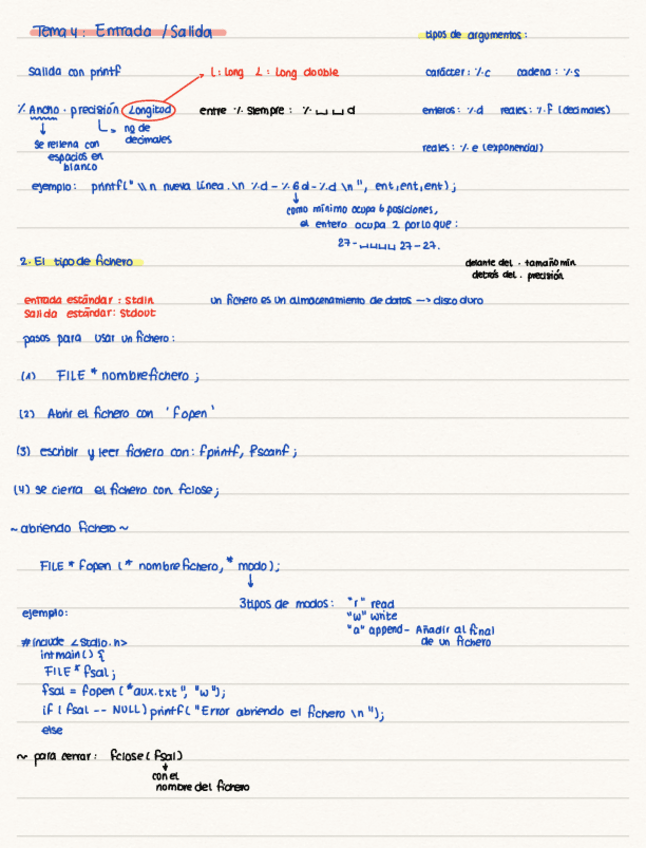 Tema 4: Entrada / Salida
tipos de argumentos:
Salida con printf
l: long L: Long dooble
carácter: %c cadena: %s
%. Ancho. precisión Longitud
entre % siempre: %␣␣d
enteros: %d reales: %f (decimales)
se rellena con espacios en blanco
no de decimales
reales: %e (exponencial)
ejemplo: printf(" \\n nueva línea. \n %d - %6d - %d \n ", ent, ent, ent);
como mínimo ocupa 6 posiciones,
el entero ocupa 2 por lo que:
27-␣␣␣␣27-27.
2. El tipo de fichero
delante del . tamaño min
detrás del . precisión
entrada estándar: Stdin
Salida estándar: Stdout
un fichero es un almacenamiento de datos --> disco duro
pasos para usar un fichero:
(1) FILE * nombrefichero;
(2) Abrir el fichero con 'fopen'
(3) escribir y leer fichero con: fprintf, fscanf;
(4) se cierra el fichero con fclose;
~ abriendo fichero ~
FILE * fopen (* nombre fichero, * modo);
3 tipos de modos: "r" read
"w" write
"a" append - Añadir al final
de un fichero
ejemplo:
#include <Stdio.h>
int main() {
FILE * fsal;
fsal = fopen ("aux.txt", "w");
if (fsal -- NULL) printf( "Error abriendo el fichero \n ");
else
~ para cerrar: fclose (fsal)
con el
nombre del fichero